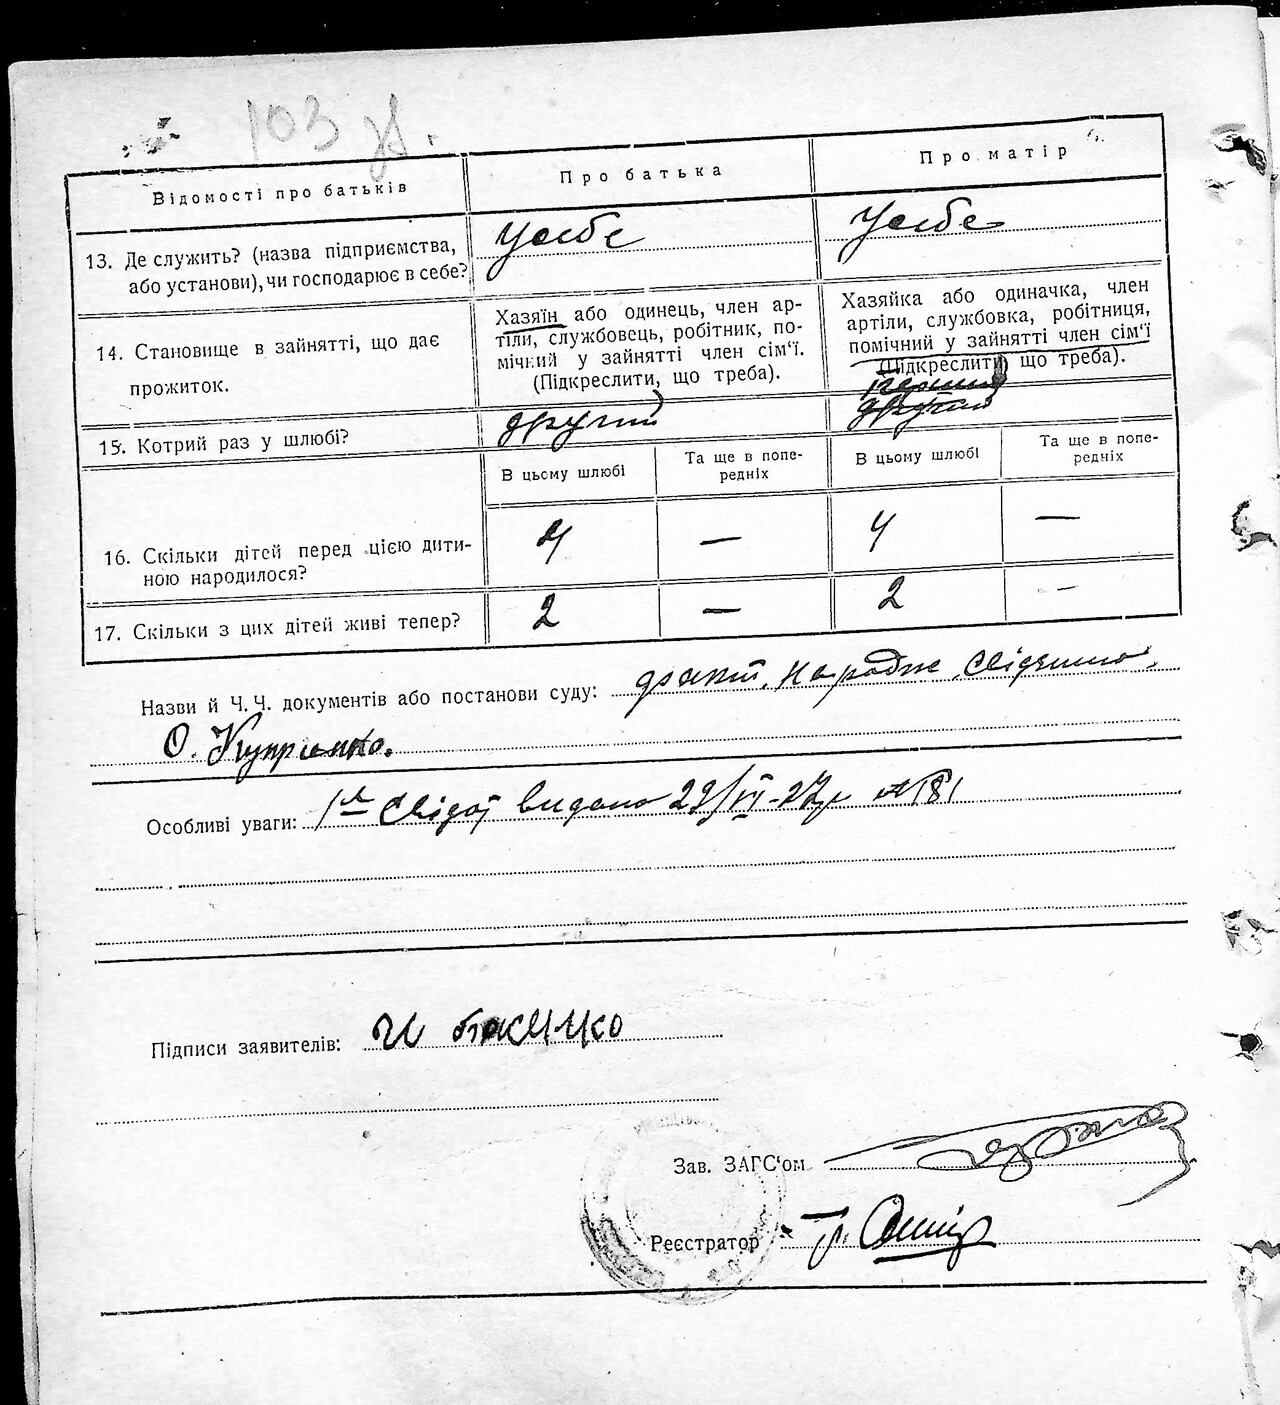 103
Відомості про батьків
Про батька
Про матір
13. Де служить? (назва підприємства,
або установи), чи господарює в себе?
У себе
У себе
14. Становище в зайнятті, що дає
прожиток.
Хазяїн або одинець, член ар-
тіли, службовець, робітник, по-
мічний у зайнятті член сім'ї.
(Підкреслити, що треба).
Хазяйка або одиначка, член
артіли, службовка, робітниця,
помічний у зайнятті член сім'ї
(Підкреслити, що треба).
15. Котрий раз у шлюбі?
другий
перший
другий
В цьому шлюбі
Та ще в попе-
редніх
В цьому шлюбі
Та ще в попе-
редніх
16. Скільки дітей перед цією дити-
ною народилося?
4 — 4 —
17. Скільки з цих дітей живі тепер?
2 — 2 —
Назви й Ч. Ч. документів або постанови суду: факт. народж.
О. Куприенко.
Особливі уваги: видано 181
Підписи заявителів:
Зав. ЗАГС'ом
Реєстратор